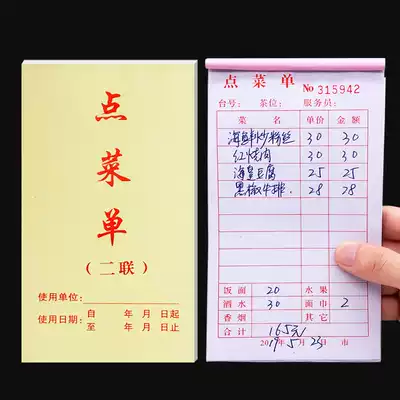 点菜单
（二联）
使用单位：
使用日期：自 年 月 日起
至 年 月 日止
点菜单 No 315942
台号： 茶位： 服务员：
菜 名 单价 金额
海鲜炒粉丝 30 30
红烧肉 30 30
海皇豆腐 25 25
黑椒牛排 28 28
饭面 20 水果
酒水 30 面巾 2
香烟 其它
合计 165元
2019年5月23日 市